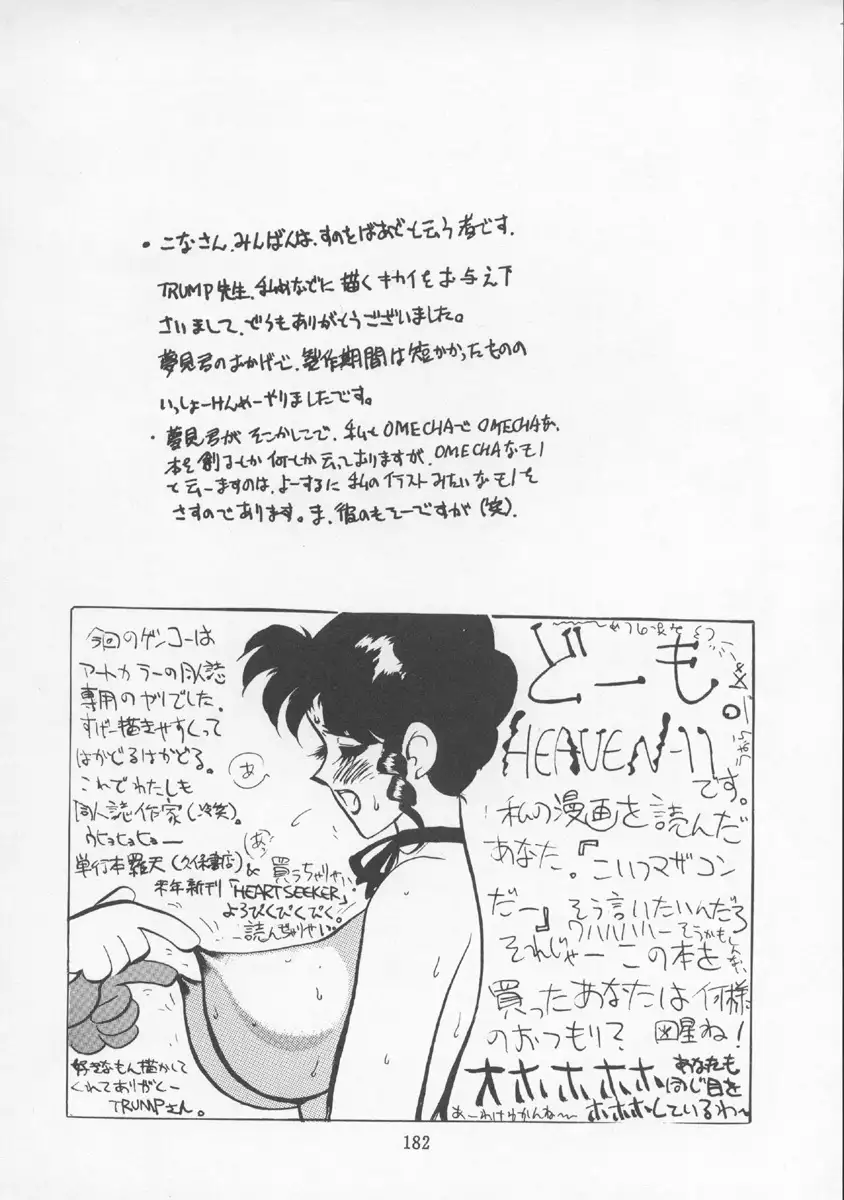 ・こなさん、みんばんは、すのをばあどと云う者です。
TRUMP先生、私めなどに描くキカイをお与え下
さいまして、どうもありがとうございました。
夢見君のおかげで、製作期間は短かかったものの
いっしょーけんめーやりましたです。
・夢見君がそこかしこで、私も OMECHAで OMECHAな
本を創るとか何とか云っておりますが、OMECHAなモノ
と云いますのは、よーするに私のイラストみたいなモノを
さすのであります。ま、彼のもそーですが(笑)。
今回のゲンコーは
アートカラーの同人誌
専用のヤツでした。
すげー描きやすくって
はかどるはかどる。
これでわたしも
同人誌作家(冷笑)。
ウヒョヒョヒョー
単行本羅天(久保書店)&買っちゃりせい
来年新刊「HEARTSEEKER」
よろぴくぴくぴく。
読んじゃりせい。
あ
あっ
好きなもん描かして
くれてありがとー
TRUMPさん。
どーも。
HEAVEN-11
です。
私の漫画を読んだ
あなた。『こいつマザコン
だー』そう言いたいんだろ
ワハハハハー そうかもしんない
それじゃー この本を
買ったあなたは何様
のおつもり? 図星ね!
オホホホホ
あなたも
同じ目を
ホホホしているわ〜
あーわけわかんな〜
182